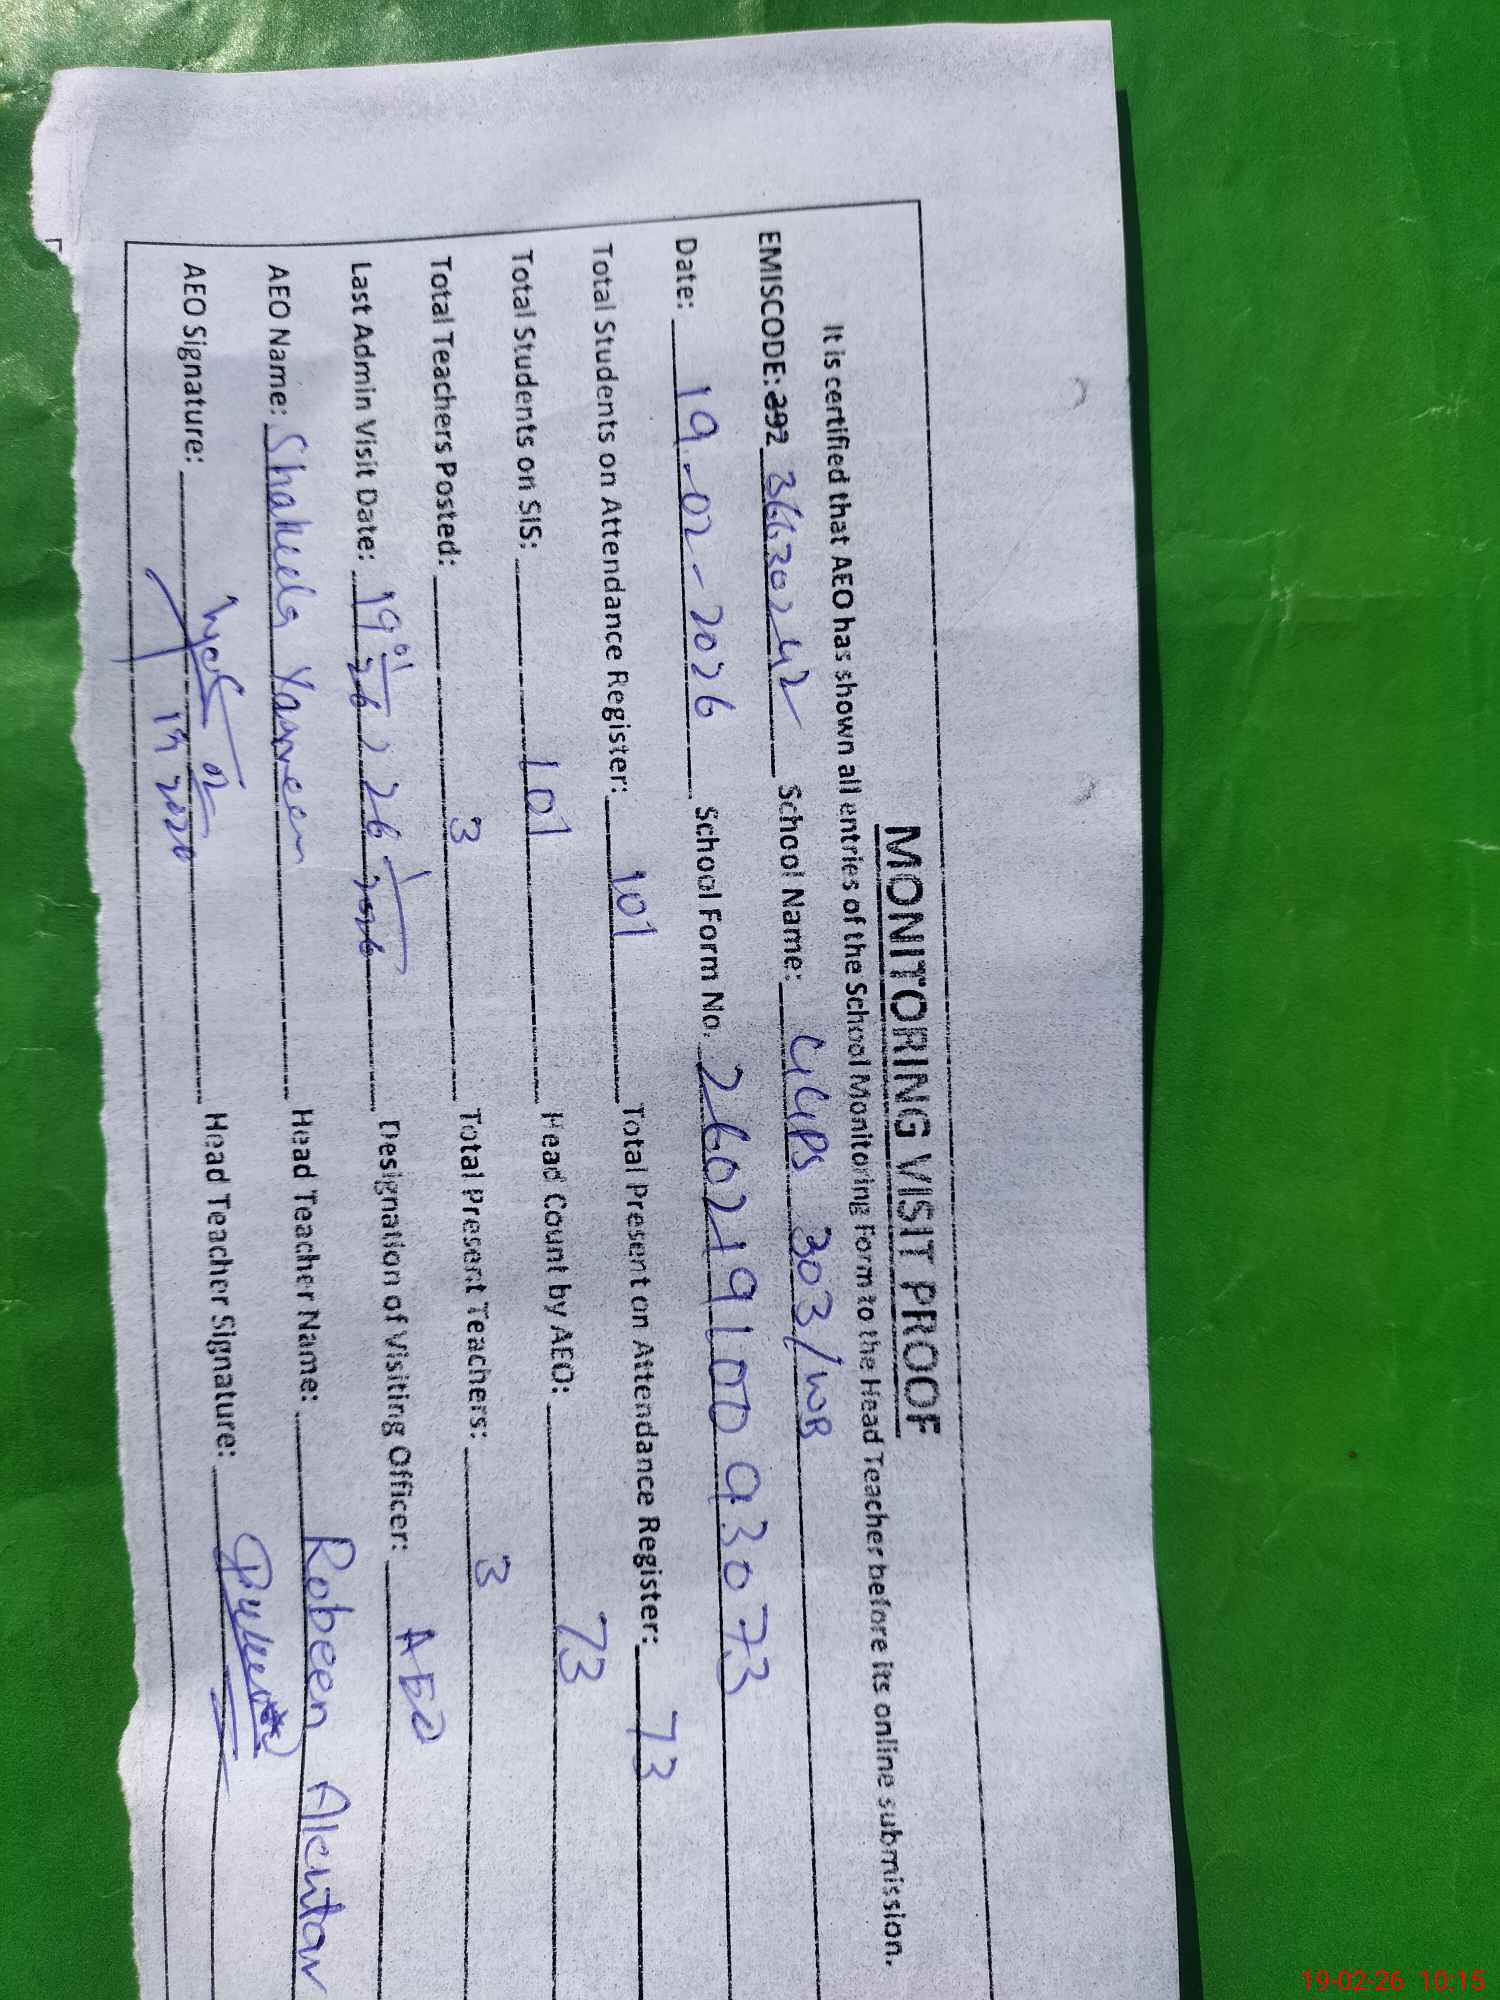 MONITORING VISIT PROOF
It is certified that AEO has shown all entries of the School Monitoring Form to the Head Teacher before its online submission.
EMISCODE: 292 36630242 School Name: GGPS 303/WB
Date: 19-02-2026 School Form No. 26021910093073
Total Students on Attendance Register: 101 Total Present on Attendance Register: 73
Total Students on SIS: 101 Head Count by AEO: 73
Total Teachers Posted: 3 Total Present Teachers: 3
Last Admin Visit Date: Designation of Visiting Officer: AEO
AEO Name: Shakeela Yasmeen Head Teacher Name: Robeen Akhtar
AEO Signature: Head Teacher Signature:
19-02-26 10:15